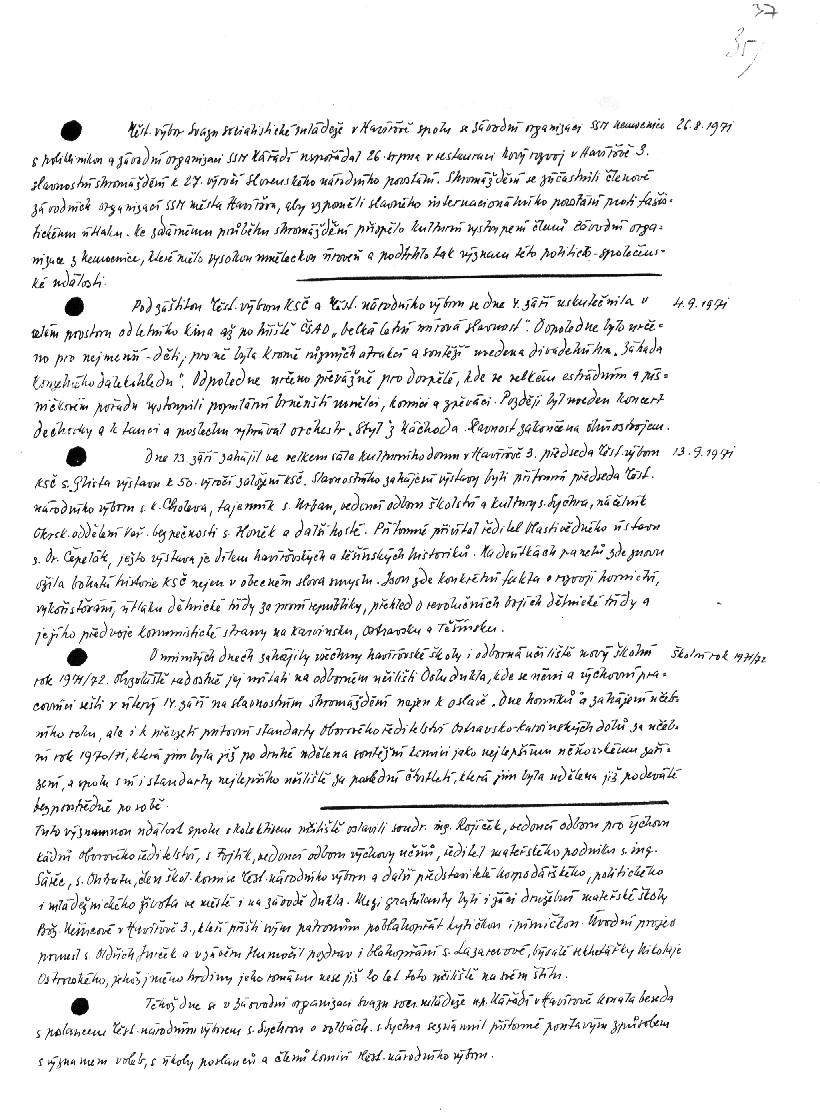 37
35
Měst. výbor Svazu socialistické mládeže v Havířově spolu se závodní organizací SSM nemocnice 26.8.1971
s poliklinikou a závodní organizací SSM Nářadí uspořádal 26. srpna v restauraci Nový rozvoj v Havířově 3.
slavnostní shromáždění k 27. výročí Slovenského národního povstání. Shromáždění se zúčastnili členové
závodních organizací SSM města Havířova, aby vzpoměli slavného internacionálního povstání proti fašis-
tickému útlaku. Ke zdárnému průběhu shromáždění přispělo kulturní vystoupení členů závodní orga-
nizace z nemocnice, které mělo vysokou uměleckou úroveň a podtrhlo tak význam této politicko-společens-
ké události.
Pod záštitou Měst. výboru KSČ a Měst. národního výboru se dne 4. září uskutečnila v 4.9.1971
celém prostoru od letního kina až po hřiště ČSAD „velká letní mírová slavnost". Dopoledne bylo urče-
no pro nejmenší - děti, pro ně byla kromě různých atrakcí a soutěží uvedena divadelní hra „Záhada
kouzelného dalekohledu". Odpoledne určeno převážně pro dospělé, kde ve velkém estrádním a pís-
ničkovém pořadu vystoupili populární brněnští umělci, komici a zpěváci. Později byl uveden koncert
dechovky a k tanci a poslechu vyhrával orchestr „Styl" z Náchoda. Slavnost zakončena ohňostrojem.
Dne 13. září zahájil ve velkém sále kulturního domu v Havířově 3. předseda Měst. výboru 13.9.1971
KSČ s. Glista výstavu k 50. výročí založení KSČ. Slavnostního zahájení výstavy byli přítomni předseda Měst.
národního výboru s. K. Choleva, tajemník s. Urban, vedoucí odboru školství a kultury s. Sychra, náčelník
Okrsk. oddělení Veř. bezpečnosti s. Honěk a další hosté. Přítomné přivítal ředitel Vlastivědného ústavu
s. Dr. Čepelák, jejíž výstava je dílem havířovských a těšínských historiků. Na desítkách panelů zde znovu
ožila bohatá historie KSČ nejen v obecném slova smyslu. Jsou zde konkrétní fakta o rozvoji hornictví,
vykořisťování, útlaku dělnické třídy za první republiky, přehled o revolučních bojích dělnické třídy a
jejího předvoje komunistické strany na Karvinsku, Ostravsku a Těšínsku.
V minulých dnech zahájily všechny havířovské školy i odborná učiliště nový školní Školní rok 1971/72
rok 1971/72. Obzvláště radostně jej uvítali na odborném učilišti Dolu Dukla, kde se učni a výchovní pra-
covníci sešli v úterý 14. září na slavnostním shromáždění nejen k oslavě „Dne horníků" a zahájení učeb-
ního roku, ale i k převzetí putovní standarty Oborového ředitelství Ostravsko-karvinských dolů za učeb-
ní rok 1970/71, která jim byla již po druhé udělena soutěžní komisí jako nejlepšímu učňovskému zaří-
zení, a spolu s ní i standarty nejlepšího učiliště za poslední čtvrtletí, která jim byla udělena již podeváté
bezprostředně po sobě.
Tuto významnou událost spolu s kolektivem učiliště oslavili soudr. ing. Rojíček, vedoucí odboru pro výchovu
kádrů Oborového ředitelství, s. Fojtík, vedoucí odboru výchovy učňů, ředitel mateřského podniku s. ing.
s. člen škol. komise Měst. národního výboru a další představitelé hospodářského, politického
i mládežnického života ve městě i na závodě Dukla. Mezi gratulanty byli i žáci družební mateřské školy
Bož. Němcové v Havířově 3., kteří přišli svým patronům poblahopřát kytičkou i písničkou. Úvodní projev
pronesl s. Oldřich Jurček a v závěru tlumočil pozdrav i blahopřání s. Lazarevové, bývalé sekretářky Nikolaje
Ostrovského, jehož jméno hrdiny jeho románu nese již 20 let toto učiliště na svém štítu.
Téhož dne se v závodní organizaci Svazu soci. mládeže n.p. Nářadí v Havířově konala beseda
s poslancem Měst. národním výborem s. Sychrou o volbách. s. Sychra seznámil přítomné poutavým způsobem
s významem voleb, s úkoly poslanců a členů komisí Měst. národního výboru.